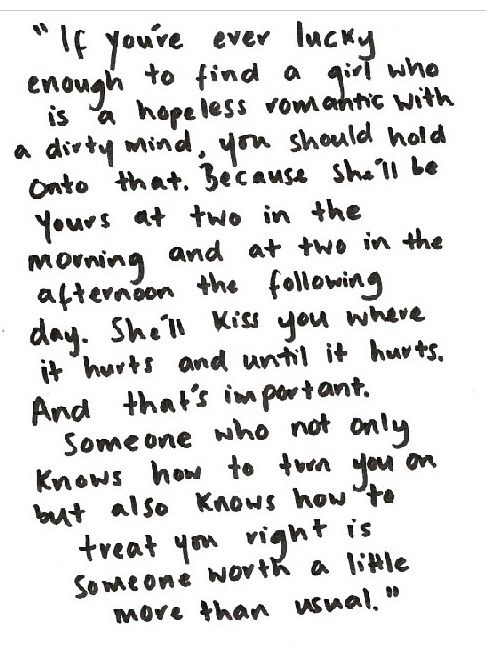 "If you're ever lucky
enough to find a girl who
is a hopeless romantic with
a dirty mind, you should hold
onto that. Because she'll be
yours at two in the
morning and at two in the
afternoon the following
day. She'll kiss you where
it hurts and until it hurts.
And that's important.
Someone who not only
knows how to turn you on
but also knows how to
treat you right is
someone worth a little
more than usual."